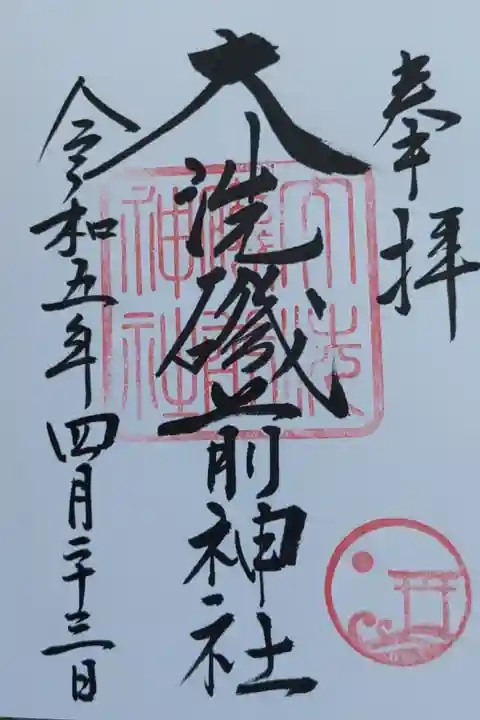 奉拝
大洗磯前神社
令和五年四月二十三日
大洗磯前神社